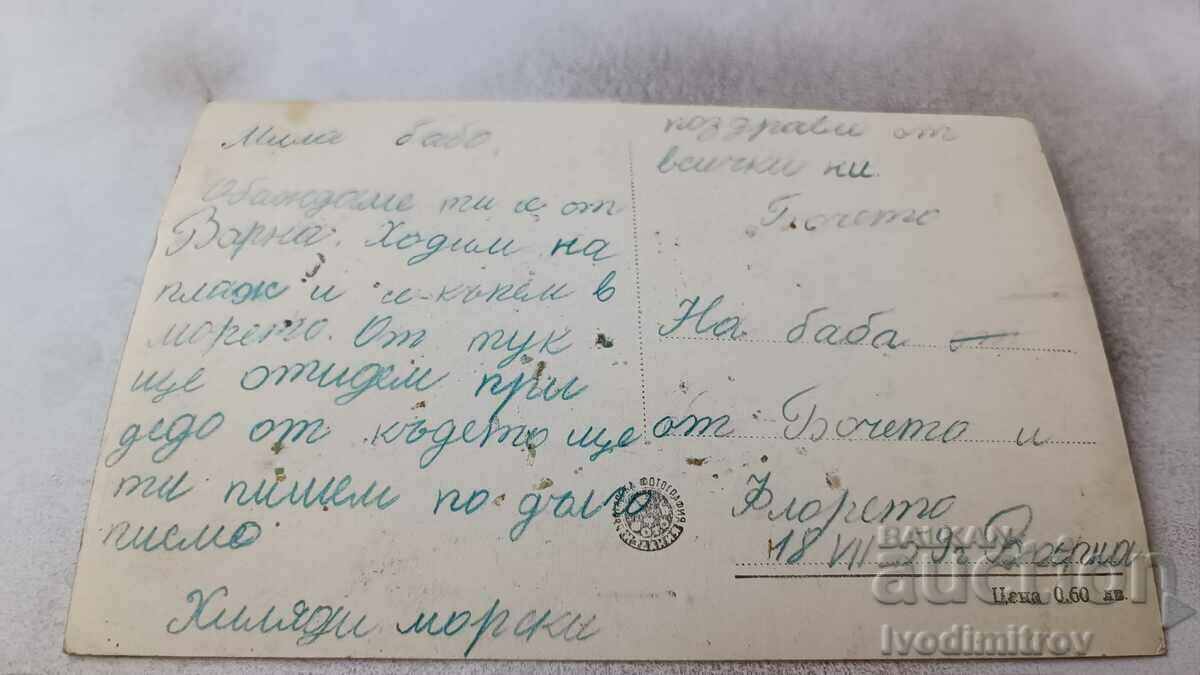 Мила бабо,
Обаждаме ти се от
Варна. Ходим на
плаж и се къпем в
морето. От тук
ще отидем при
дедо от където ще
ти пишем по дълго
писмо
Хиляди морски
поздрави от
всички ни.
Бочето
На баба от
от Бочето и
Флорето
18 VII 59г Варна
ФОТОГРАФИЯ
Цена 0.60 лв.
BALKAN
auction
Ivodimitrov